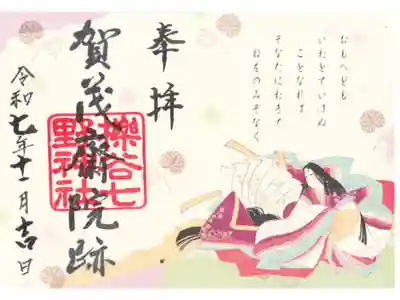 おもへども
いむとていはぬ
ことなれば
そなたにむきて
ねをのみぞなく
奉拝
賀茂齋院跡
櫟谷七野神社
令和七年十一月吉日